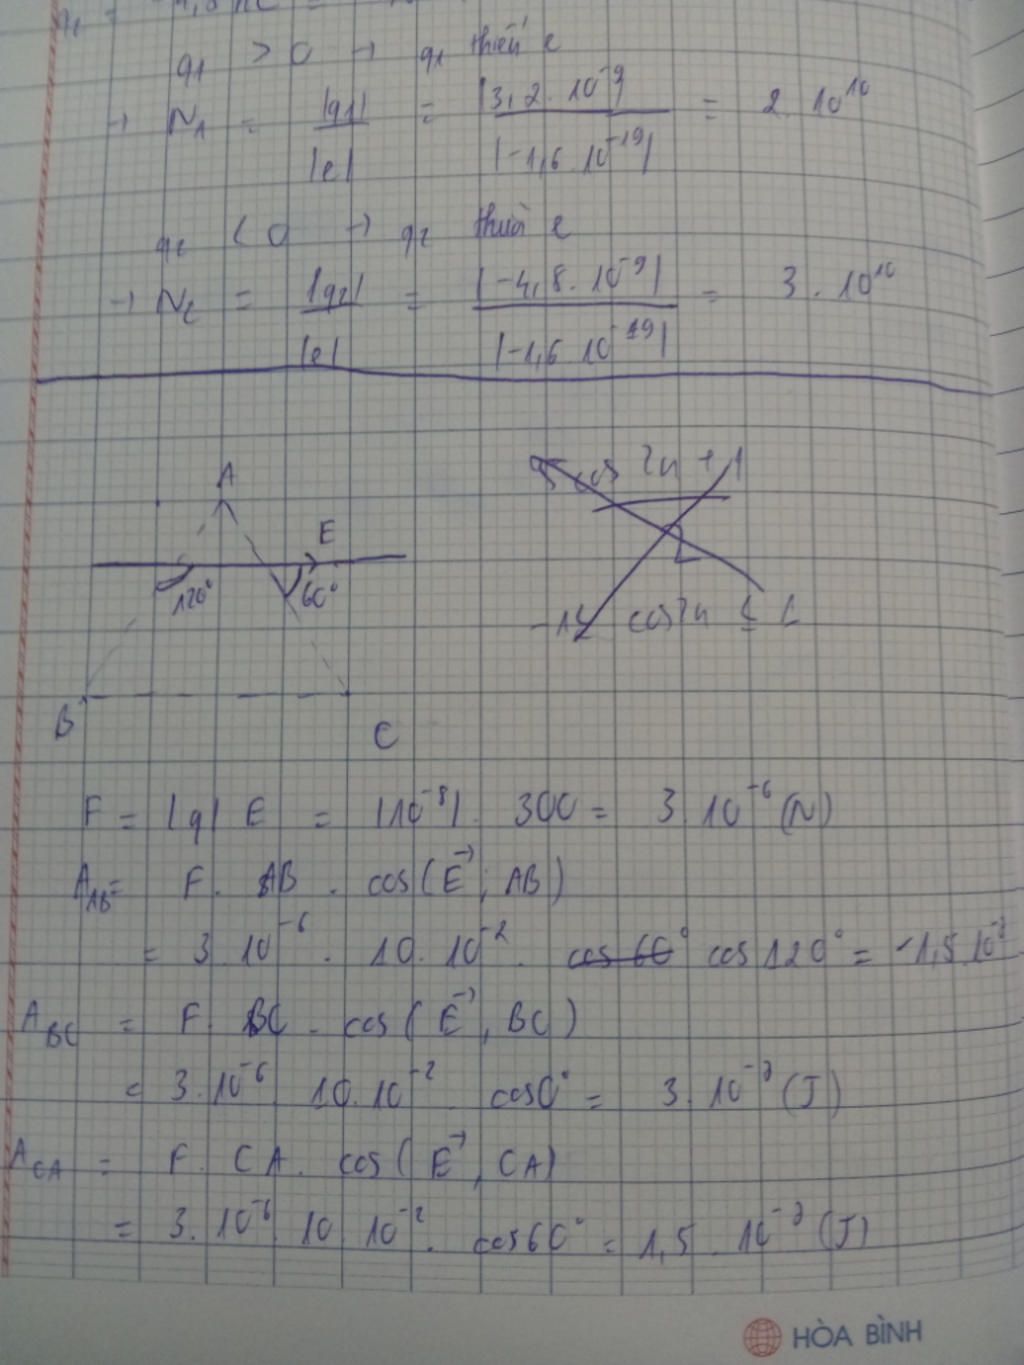 q₁ > 0 → q₁ thiếu e
→ N₁ = |q₁| / |e| = |3,2 . 10⁻⁹| / |-1,6 . 10⁻¹⁹| = 2 . 10¹⁰
q₂ < 0 → q₂ thừa e
→ N₂ = |q₂| / |e| = |-4,8 . 10⁻⁹| / |-1,6 . 10⁻¹⁹| = 3 . 10¹⁰
A
E
120° 60°
B
C
cos 2x + 1
2
-1 ≤ cos 2x ≤ 1
F = |q| E = |10⁻⁸| . 300 = 3 . 10⁻⁶ (N)
A_AB = F . AB . cos(E⃗, AB)
= 3 . 10⁻⁶ . 10 . 10⁻² . cos 60° cos 120° = -1,5 . 10⁻⁷
A_BC = F . BC . cos(E⃗, BC)
= 3 . 10⁻⁶ 10 . 10⁻² cos 0° = 3 . 10⁻⁷ (J)
A_CA = F . CA . cos(E⃗, CA)
= 3 . 10⁻⁶ 10 10⁻² . cos 60° = 1,5 . 10⁻⁷ (J)
HÒA BÌNH